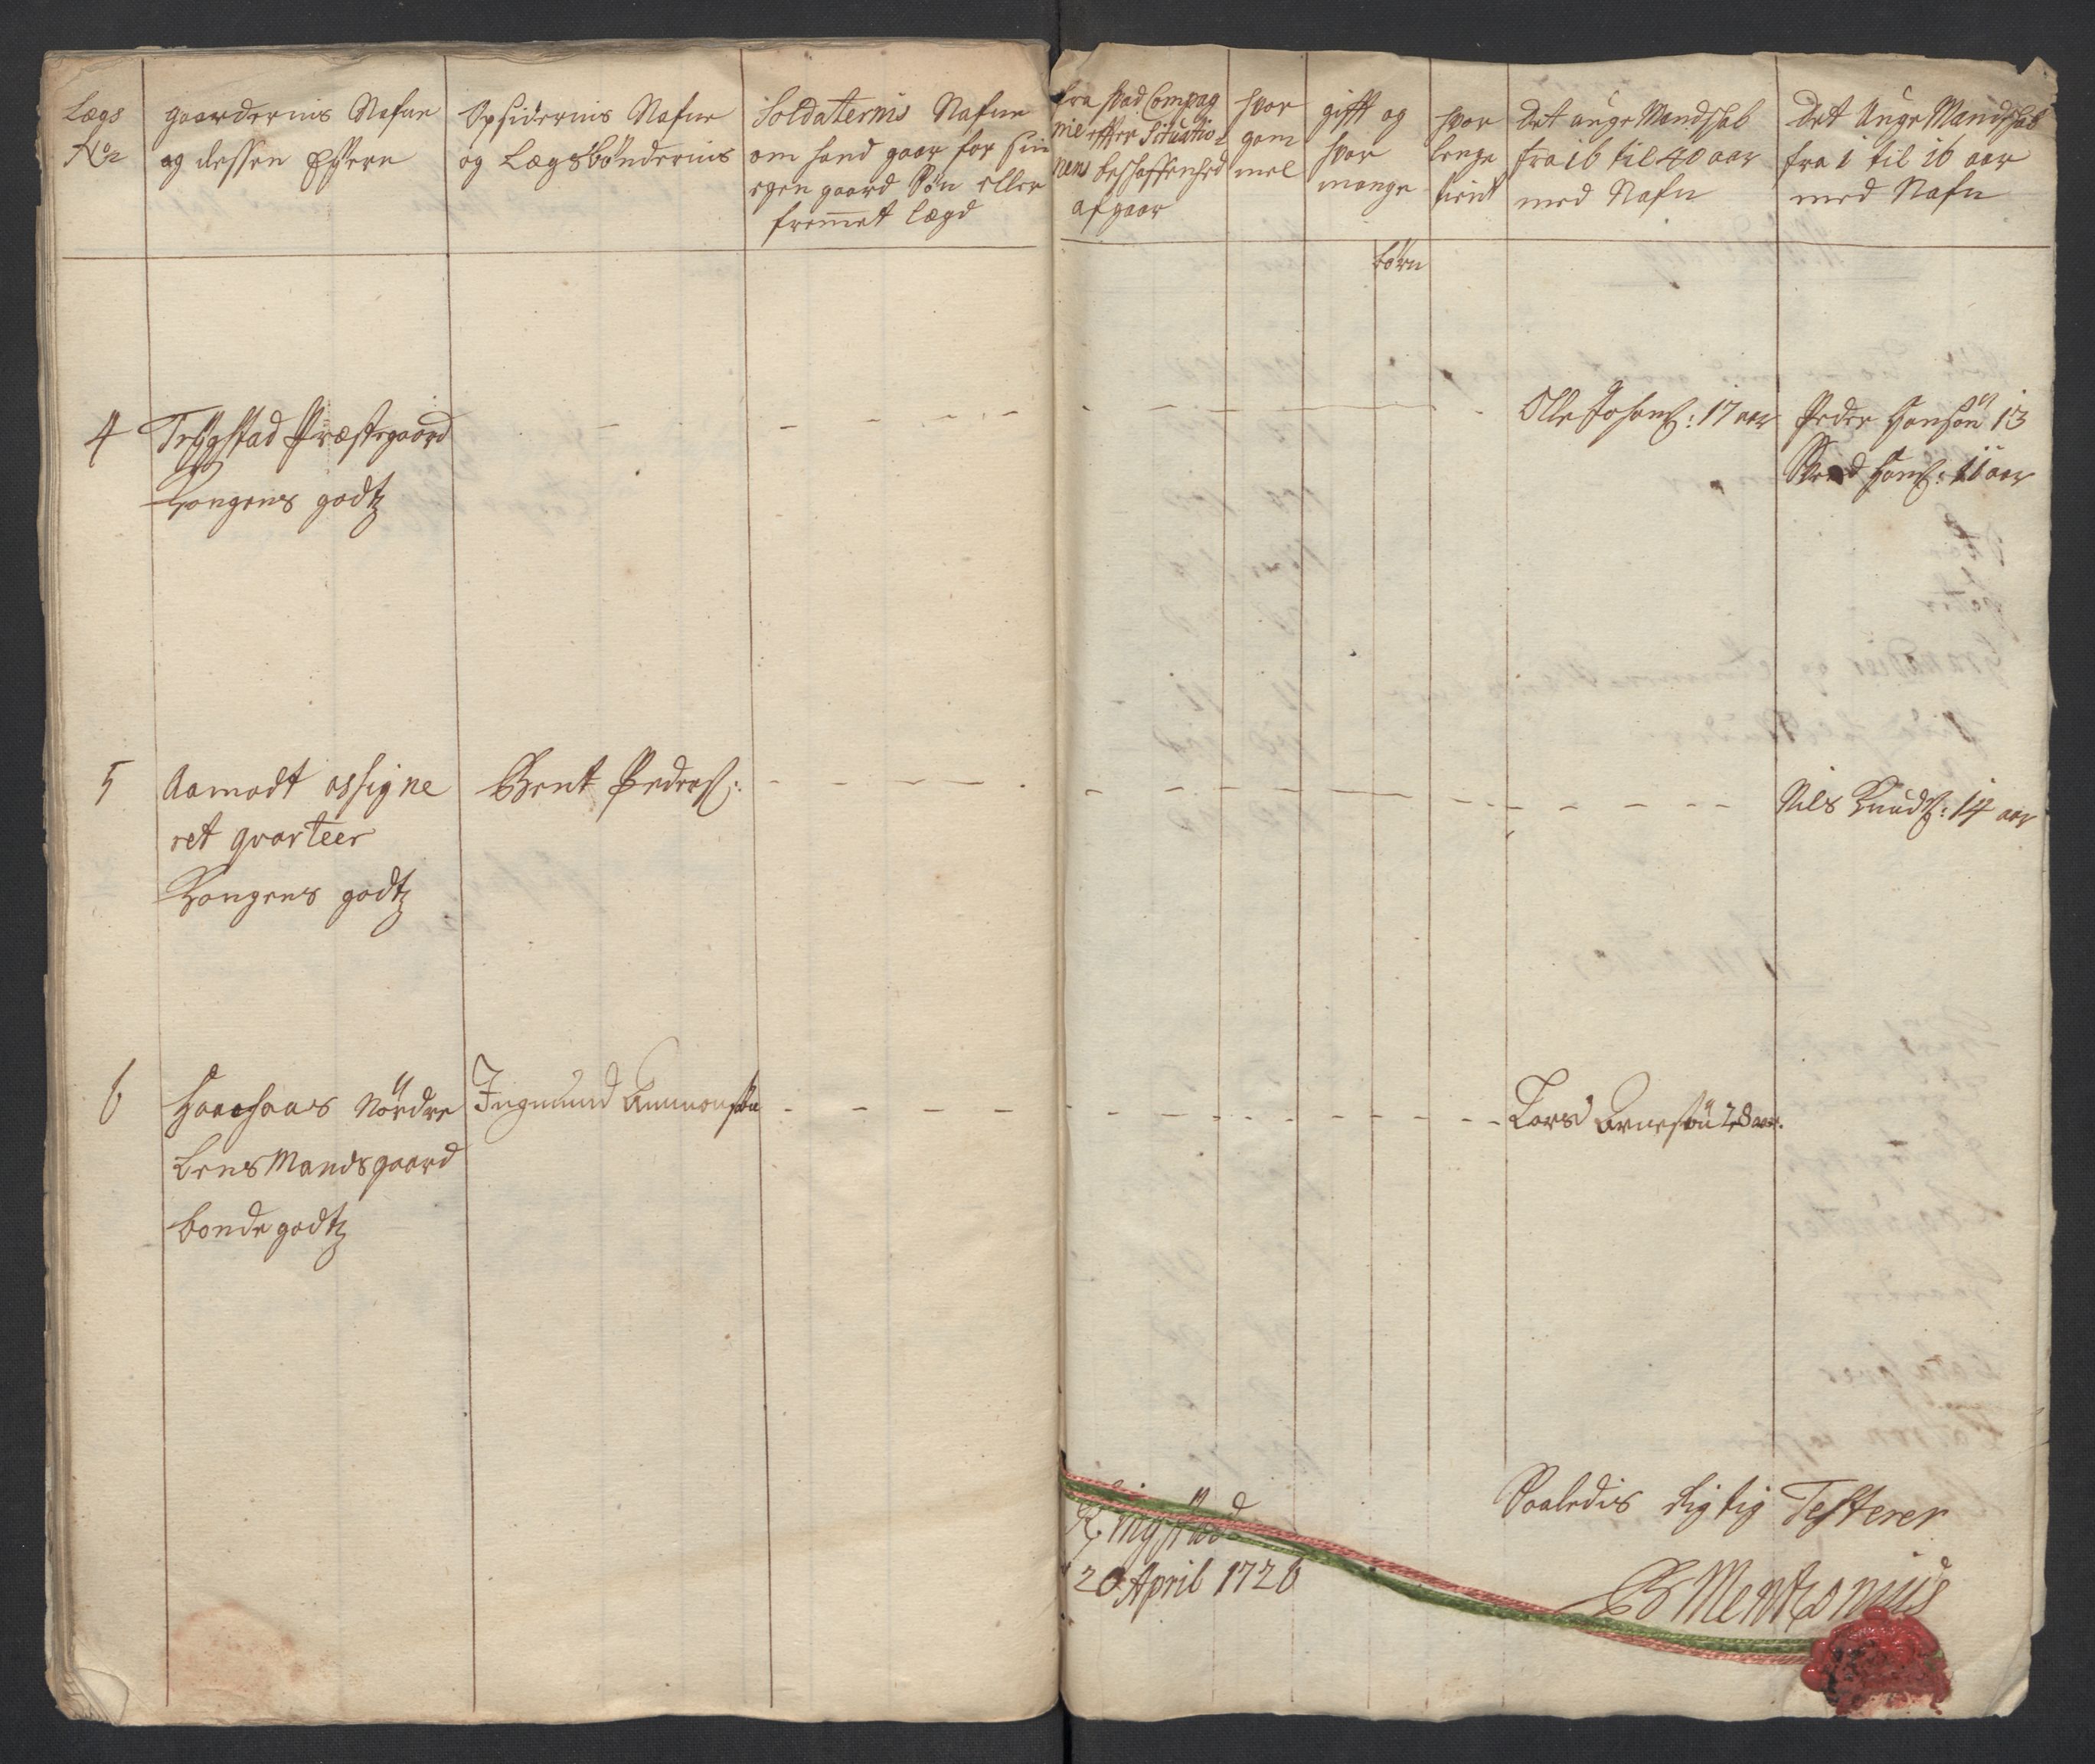 Lægs
No
gaardernis Nafne
og dessen Eÿere
Opsidernis Nafne
og Lægsbøndernis
Soldaternis Nafne
om hand gaar for sin
egen gaard Søn eller
fremet lægd
fra hvad Compag
nie effter Situatio
nens beschaffenhed
afgaar
hvor
gam
mel
gifft og
hvor
mange
børn
hvor
lenge
tient
Det unge Mandschab
fra 16 til 40 aar
med Nafn
Det Unge Mandschab
fra 1 til 16 aar
med Nafn
4 Præstegaard
Kongens godtz
Olle Johans: 17 aar
Peder Hansøn 13
Hans: 11 aar
5 Aamodt assigne
ret qvarteer
Kongens godtz
Bent Peders:
Nils Knuds: 14 aar
6 Nordre
LensMandsgaard
bonde godtz
Ingmund Ammonsøn
Lars Arnesøn 28 aar.
Saaledis rigtig Testerer
20 April 1726